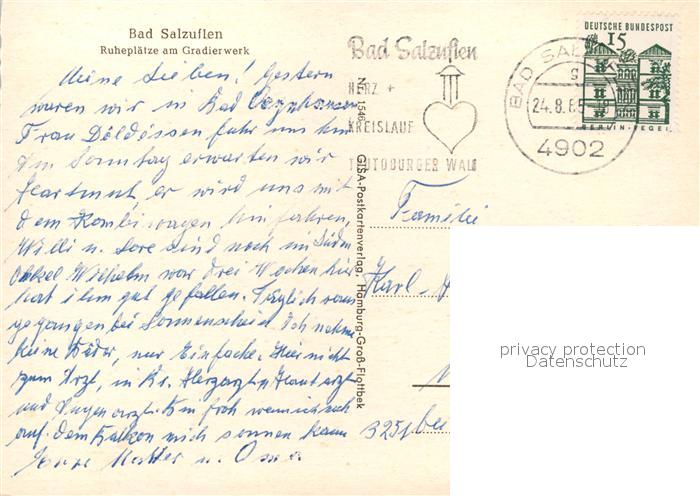 Bad Salzuflen
Ruheplätze am Gradierwerk
Meine Lieben! Gestern
waren wir in Bad Oeynhausen
Frau fuhr uns hin
Am Sonntag erwarten wir
Hartmut er wird uns mit
dem Kombiwagen hinfahren,
Willi u. Lore sind noch im Süden
Onkel Wilhelm war drei Wochen hier
hat ihm gut gefallen. Täglich
gegangen bei Sonnenschein. Ich nehme
keine Bäder, nur Einfache. Hier nicht
zum Arzt, in Kr. Herzarzt, Hautarzt
und Augenarzt. Bin froh wenn ich mich
auf dem Balkon mich sonnen kann
Mutter u. Oma
Nr. 1546
GISA-Postkartenverlag, Hamburg-Groß-Flottbek
Bad Salzuflen
HERZ +
KREISLAUF
TEUTOBURGER WALD
BAD SALZUFLEN
g
24.8.65
4902
DEUTSCHE BUNDESPOST
15
BERLIN-TEGEL
Familie
Karl-
3251
privacy protection
Datenschutz